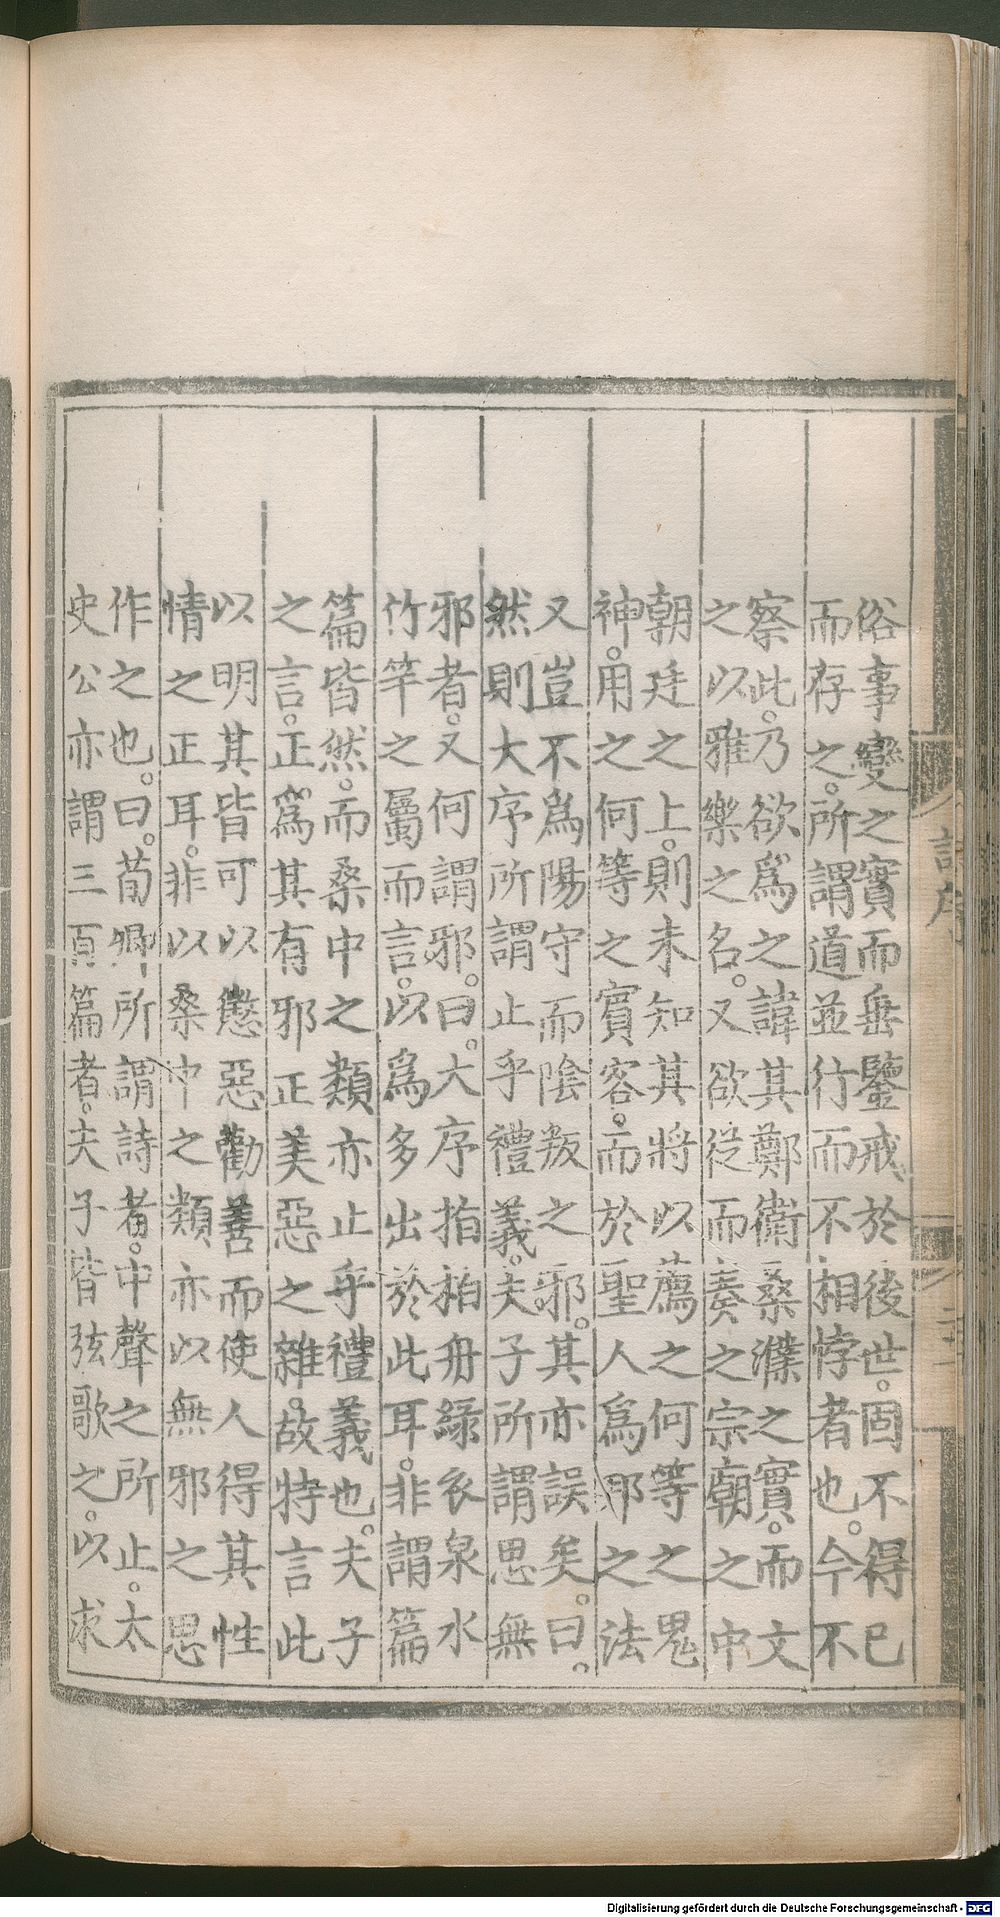 俗事變之實而垂鑒戒於後世。固不得已
而存之。所謂道並行而不相悖者也。今不
察此。乃欲爲之諱其鄭衛桑濮之實。而文
之以雅樂之名。又欲從而奏之宗廟之中
朝廷之上。則未知其將以薦之何等之鬼
神。用之何等之賓容。而於聖人爲邦之法
又豈不爲陽守而陰叛之邪。其亦誤矣。曰。
然則大序所謂止乎禮義。夫子所謂思無
邪者。又何謂邪。曰。大序指柏舟綠衣泉水
竹竿之屬而言。以爲多出於此耳。非謂篇
篇皆然。而桑中之類亦止乎禮義也。夫子
之言。正爲其有邪正美惡之雜。故特言此
以明其皆可以懲惡勸善而使人得其性
情之正耳。非以桑中之類亦以無邪之思
作之也。曰。荀卿所謂詩者。中聲之所止。太
史公亦謂三百篇者。夫子皆弦歌之。以求
詩序
Digitalisierung gefördert durch die Deutsche Forschungsgemeinschaft - DFG